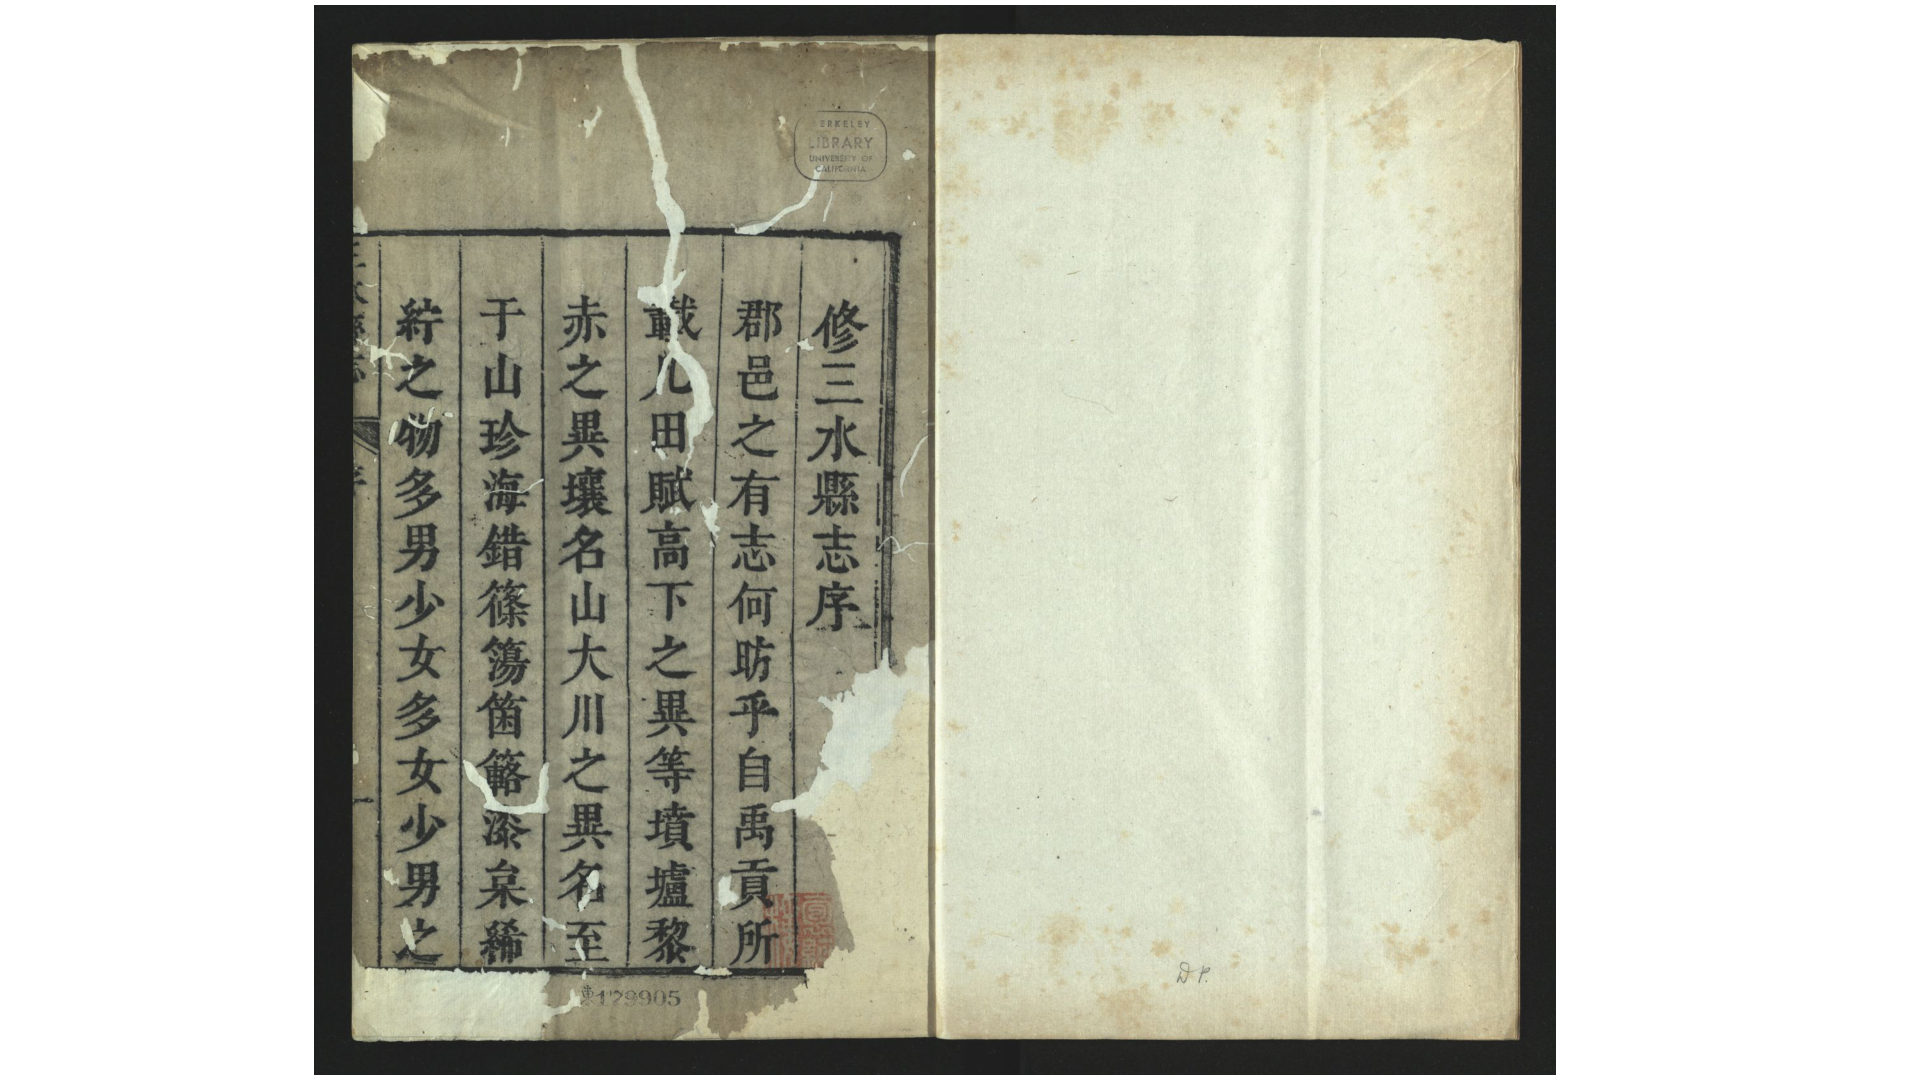 修三水縣志序
郡邑之有志何昉乎自禹貢所
載凡田賦高下之異等墳壚黎
赤之異壤名山大川之異名至
于山珍海錯篠簜箘簵漆枲絺
紵之物多男少女多女少男之
BERKELEY
LIBRARY
UNIVERSITY OF
CALIFORNIA
179905
D P.